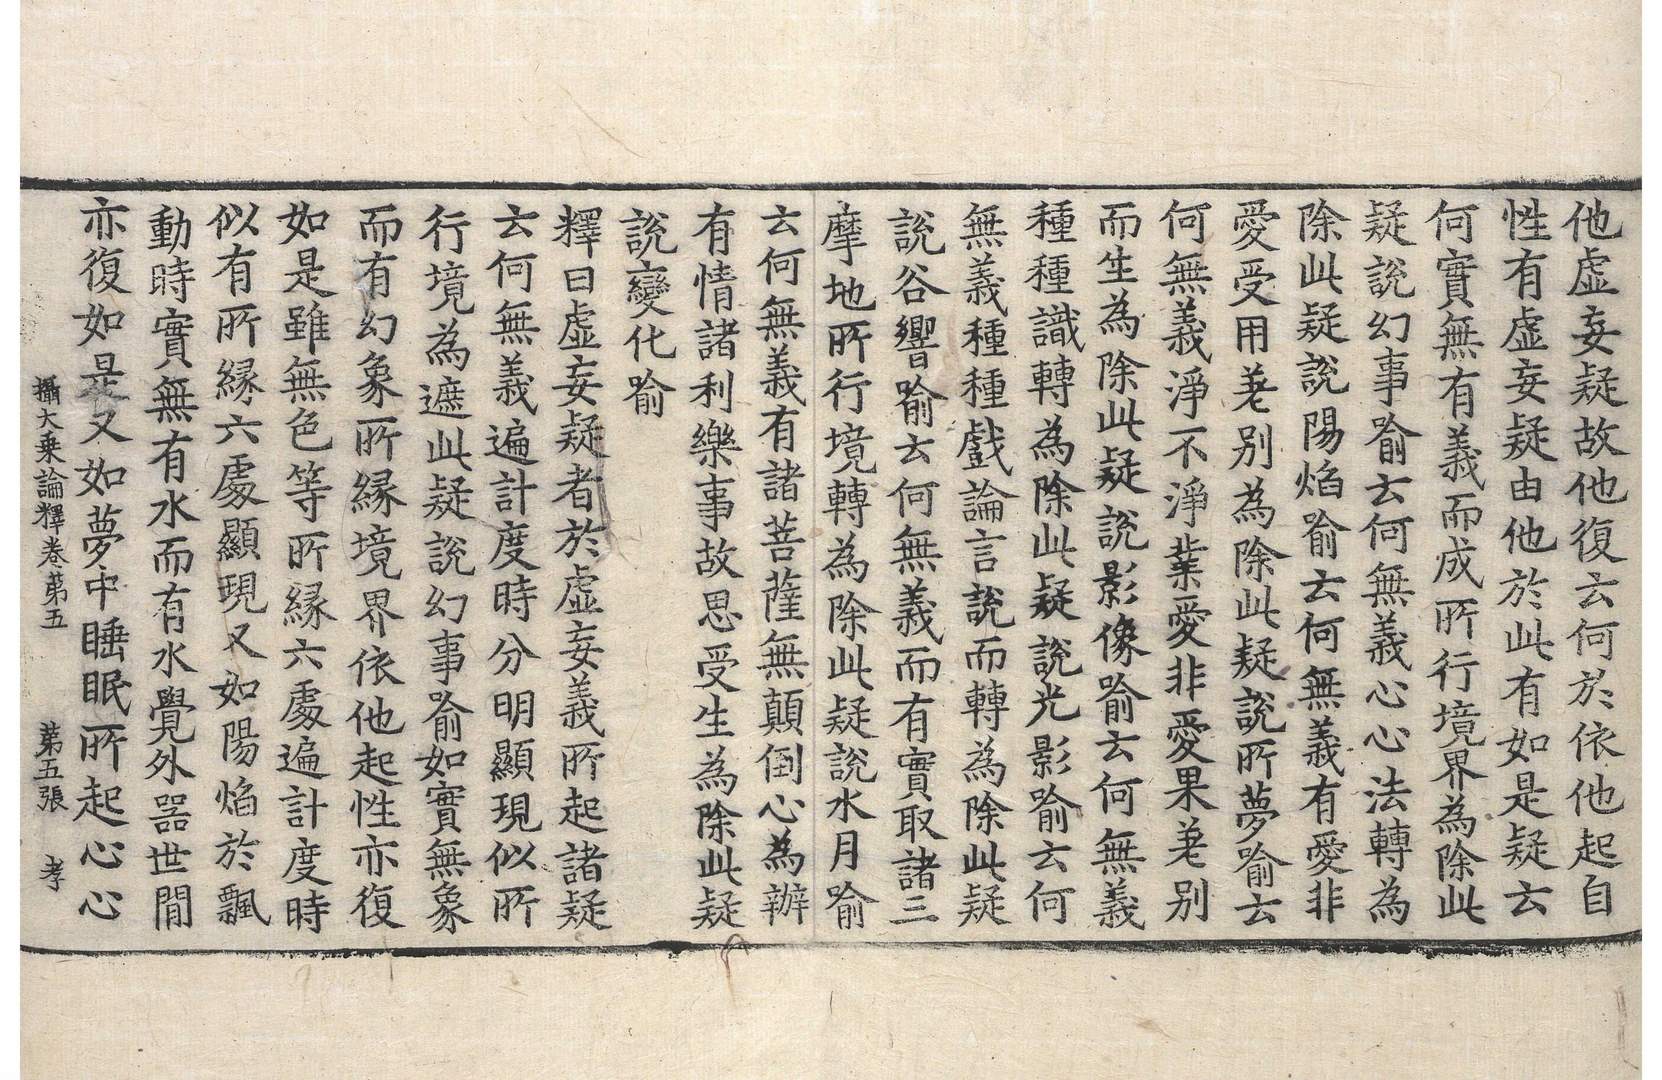 他虛妄疑故他復云何於依他起自
性有虛妄疑由他於此有如是疑云
何實無有義而成所行境界為除此
疑說幻事喻云何無義心心法轉為
除此疑說陽焰喻云何無義有愛非
愛受用差別為除此疑說所夢喻云
何無義淨不淨業愛非愛果差別
而生為除此疑說影像喻云何無義
種種識轉為除此疑說光影喻云何
無義種種戲論言說而轉為除此疑
說谷響喻云何無義而有實取諸三
摩地所行境轉為除此疑說水月喻
云何無義有諸菩薩無顛倒心為辦
有情諸利樂事故思受生為除此疑
說變化喻
釋曰虛妄疑者於虛妄義所起諸疑
云何無義遍計度時分明顯現似所
行境為遮此疑說幻事喻如實無象
而有幻象所緣境界依他起性亦復
如是雖無色等所緣六處遍計度時
似有所緣六處顯現又如陽焰於飄
動時實無有水而有水覺外器世間
亦復如是又如夢中睡眠所起心心
攝大乘論釋卷第五 第五張 孝